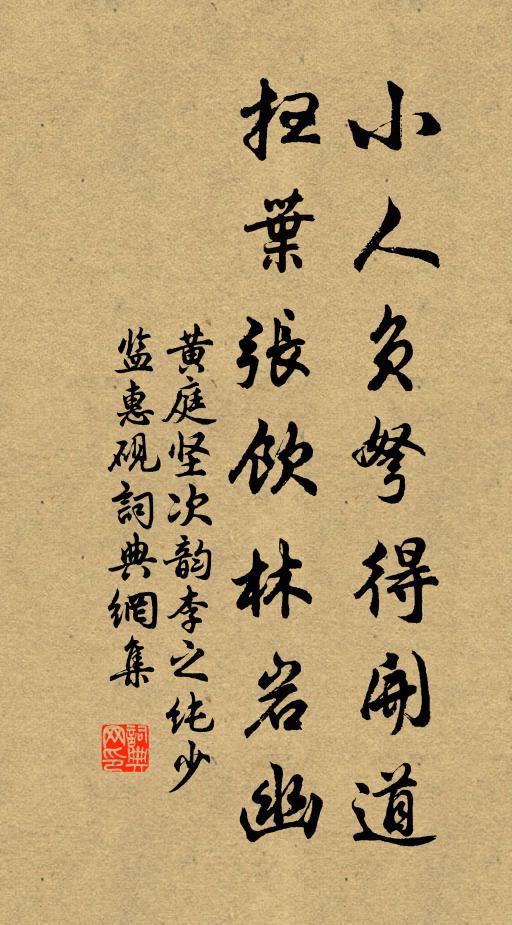 小人负弩得開道
扫葉張飲林岩幽
黄庭坚次韵李之纯少
监惠砚詞典網集
詞典網印